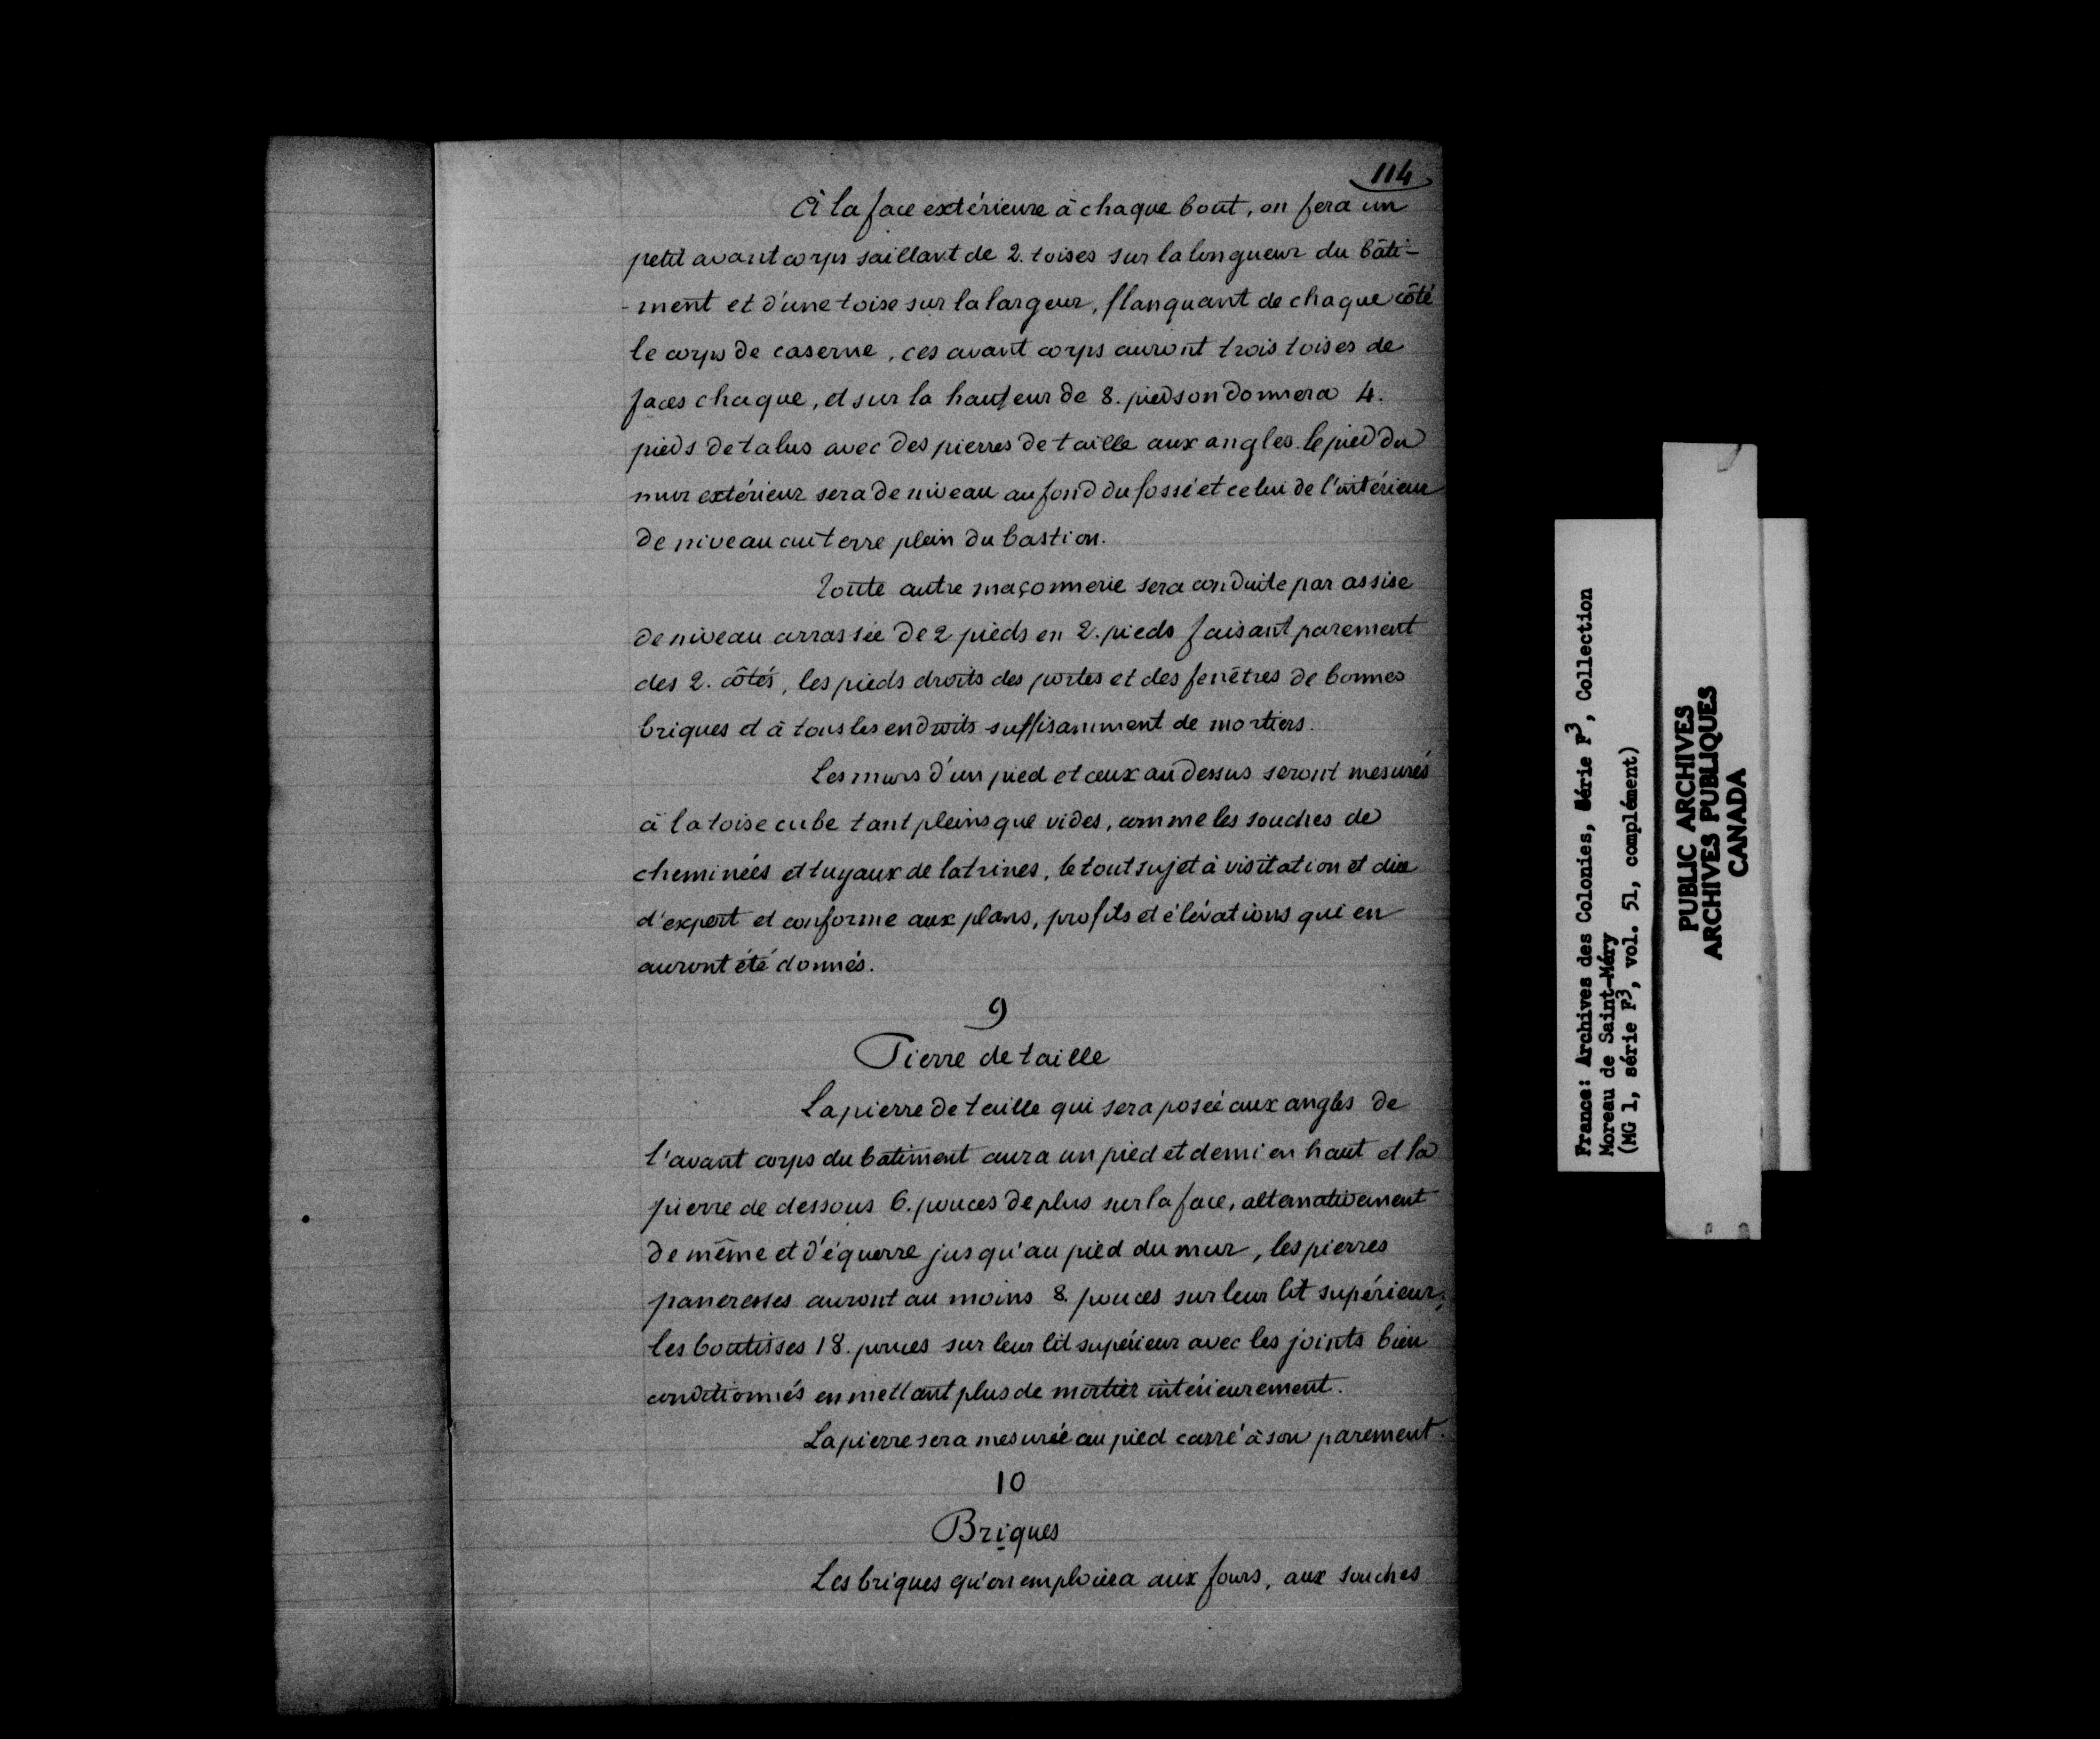 114
A la face extérieure à chaque bout, on fera un
petit avant corps saillant de 2. toises sur la longueur du bâti-
-ment et d'une toise sur la largeur, flanquant de chaque côté
le corps de caserne, ces avant corps auront trois toises de
faces chaque, et sur la hauteur de 8. pieds on donnera 4.
pieds de talus avec des pierres de taille aux angles. le pied du
mur extérieur sera de niveau au fond du fossé et celui de l'intérieur
de niveau au terre plein du bastion.
Toute autre maçonnerie sera conduite par assise
de niveau arrassée de 2 pieds en 2. pieds faisant parement
des 2. côtés, les pieds droits des portes et des fenêtres de bonnes
briques et à tous les endroits suffisamment de mortiers.
Les murs d'un pied et ceux au dessus seront mesurés
à la toise cube tant pleins que vides, comme les souches de
cheminées et tuyaux de latrines, le tout sujet à visitation et dire
d'expert et conforme aux plans, profils et élévations qui en
auront été donnés.
9
Pierre de taille
La pierre de taille qui sera posée aux angles de
l'avant corps du batiment aura un pied et demi en haut et la
pierre de dessous 6. pouces de plus sur la face, alternativement
de même et d'équerre jusqu'au pied du mur, les pierres
paneresses auront au moins 8. pouces sur leur lit supérieur,
les boutisses 18. pouces sur leur lit supérieur avec les joints bien
conditionnés en mettant plus de mortier intérieurement.
La pierre sera mesurée au pied carré à son parement.
10
Briques
Les briques qu'on emploiera aux fours, aux souches
France: Archives des Colonies, Série F3, Collection
Moreau de Saint-Méry
(MG 1, série F3, vol. 51, complément)
PUBLIC ARCHIVES
ARCHIVES PUBLIQUES
CANADA